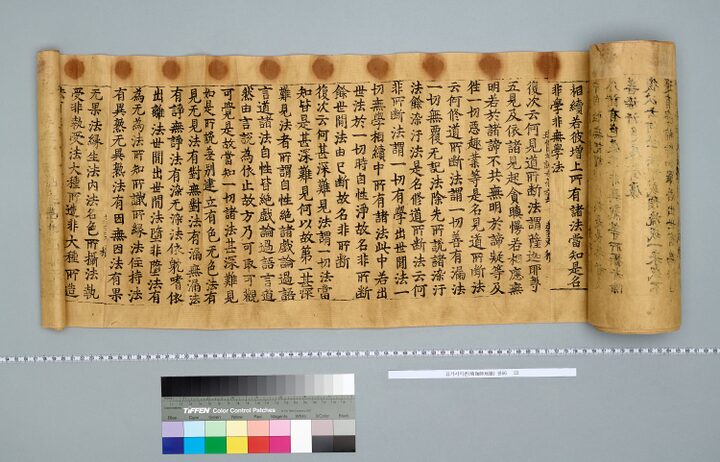 相續若彼增上所有諸法當知是名
非學非無學法
復次云何見道所斷法謂薩迦耶等
五見及依諸見起貪瞋慢若相應無
明若於諸諦不共無明於諦疑等及
往一切惡趣業等是名見道所斷法
云何修道所斷法謂一切善有漏法
一切無覆无記法除先所說諸染汙
法餘染汙法是名修道所斷法云何
非所斷法謂一切有學出世間法一
切無學相續中所有諸法此中若出
世法於一切時自性淨故名非所斷
餘世間法由已斷故名非所斷
復次云何甚深難見法謂一切法當
知皆是甚深難見何以故第一甚深
難見法者所謂自性絶諸戲論過語
言道諸法自性皆絶戲論過語言道
然由言說為依止故方乃可取可觀
可覺是故當知一切諸法甚深難見
如是所說差別建立有色无色法有
見无見法有對無對法有漏無漏法
有諍無諍法有染无染法依躭嗜依
出離法世間出世間法墮非墮法有
為无為法所知所識所緣法住持法
有異熟无異熟法有因無因法有果
无果法緣生法內法名色所攝法執
受非執受法大種所造非大種所造
TIFFEN Color Control Patches
Blue Cyan Green Yellow Red Magenta White 3/Color Black